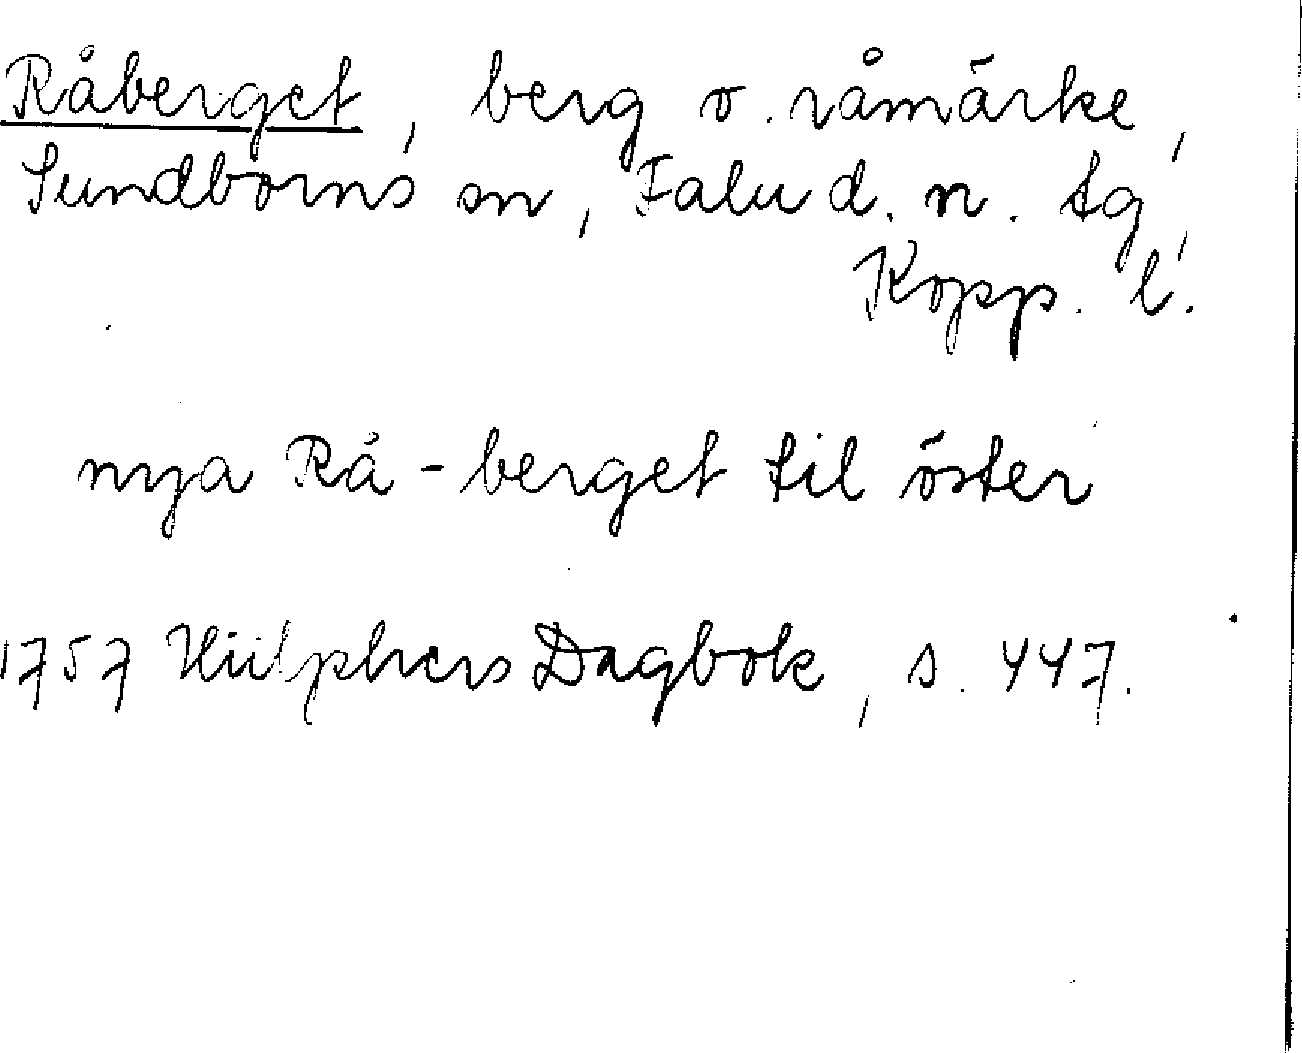 Råberget, berg o. råmärke,
Sundborns sn, Falu d. n. tg,
Kopp. l.
nya Rå-berget til öster
1757 Hülphers Dagbok, s. 447.